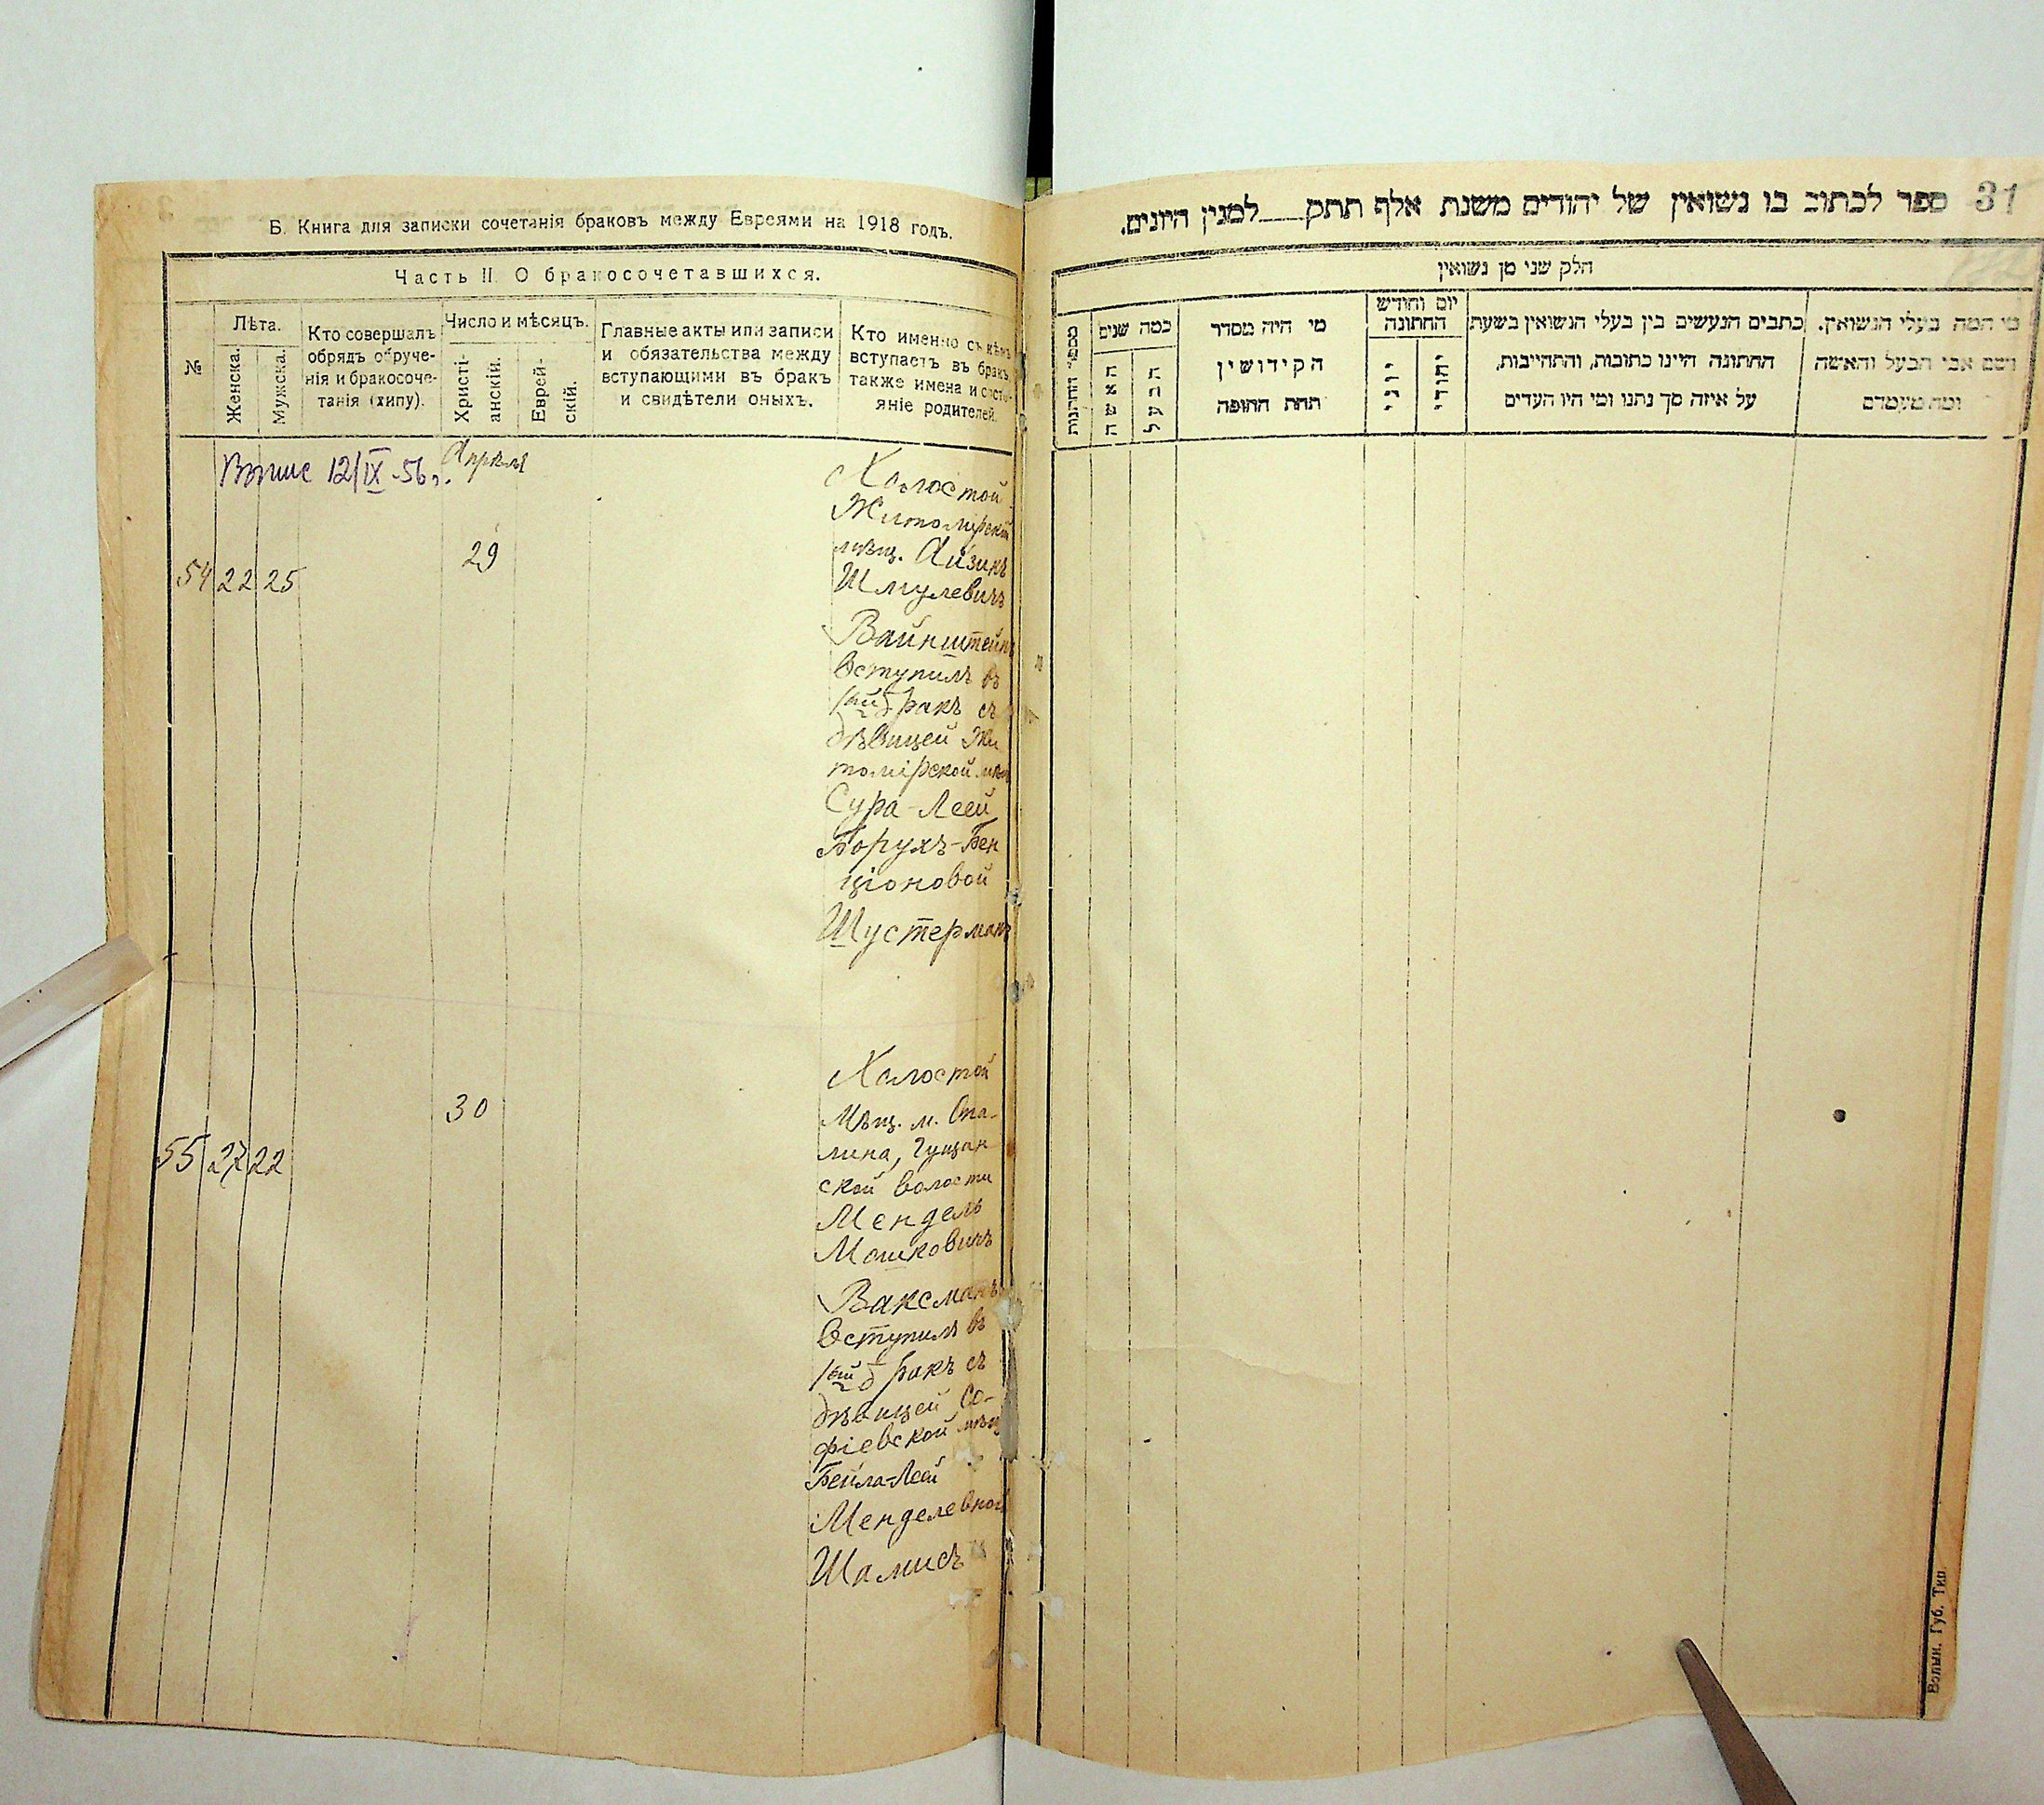 Б. Книга для записки сочетанія браковъ между Евреями на 1918 годъ.
Часть II. О бракосочетавшихся.
№
Лѣта.
Женска.
Мужска.
Кто совершалъ
обрядъ обруче-
нія и бракосоче-
танія (хипу).
Число и мѣсяцъ.
Христі-
анскій.
Еврей-
скій.
Главные акты или записи
и обязательства между
вступающими въ бракъ
и свидѣтели оныхъ.
Кто именно съ кѣмъ
вступаетъ въ бракъ,
также имена и состо-
яніе родителей.
12/IX-56 г.
Апрель
54 22 25
29
Холостой
Житомірскій
мѣщ. Айзикъ
Шмулевичъ
Вайнштейнъ
вступилъ въ
1ый бракъ съ
дѣвицей Жи
томірской мѣщ
Сура-Леей
Борухъ-Бен
ціоновой
Шустерманъ
55 27 22
30
Холостой
Мѣщ. м.
лина,
ской волости
Мендель
Мошковичъ
Ваксманъ
вступилъ въ
1ый бракъ съ
дѣвицей Со-
фіевской мѣщ
Бейла-Леей
Менделевной
Шамисъ
31
ספר לכתוב בו נשואין של יהודים משנת אלף תתק___למנין היונים.
חלק שני מן נשואין
מספר החתונות
כמה שנים
האשה
הבעל
מי היה מסדר
הקידושין
תחת החופה
יום וחודש
החתונה
יוני
יהודי
כתבים הנעשים בין בעלי הנשואין בשעת
החתונה היינו כתובות, והתחייבות,
על איזה סך נתנו ומי היו העדים
מי המה בעלי הנשואין.
ושם אבי הבעל והאשה
ומה מעמדם
Волын. Губ. Тип